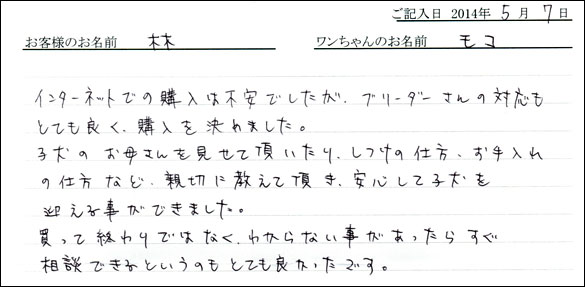 ご記入日 2014年 5月 7日
お客様のお名前 林 ワンちゃんのお名前 モコ
インターネットでの購入は不安でしたが、ブリーダーさんの対応も
とても良く、購入を決めました。
子犬のお母さんを見せて頂いたり、しつけの仕方、お手入れ
の仕方など、親切に教えて頂き、安心して子犬を
迎える事ができました。
買って終わりではなく、わからない事があったらすぐ
相談できるというのもとても良かったです。